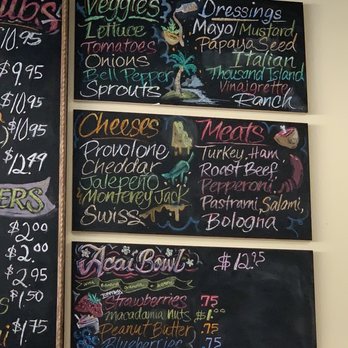 ubs
$10.95
$9.95
$10.95
$10.95
$12.99
ERS
$2.00
$2.00
$2.95
$1.50
$1.75
Veggies
Lettuce
Tomatoes
Onions
Bell Pepper
Sprouts
Dressings
Mayo/Mustard
Papaya Seed
Italian
Thousand Island
Vinaigrette
Ranch
Cheeses
Provolone
Cheddar
Jalepeño
Monterey Jack
Swiss
Meats
Turkey, Ham
Roast Beef
Pepperoni
Pastrami, Salami,
Bologna
Acai Bowl $12.95
Strawberries .75
macadamia nuts $1.00
Peanut Butter .75
Blueberries